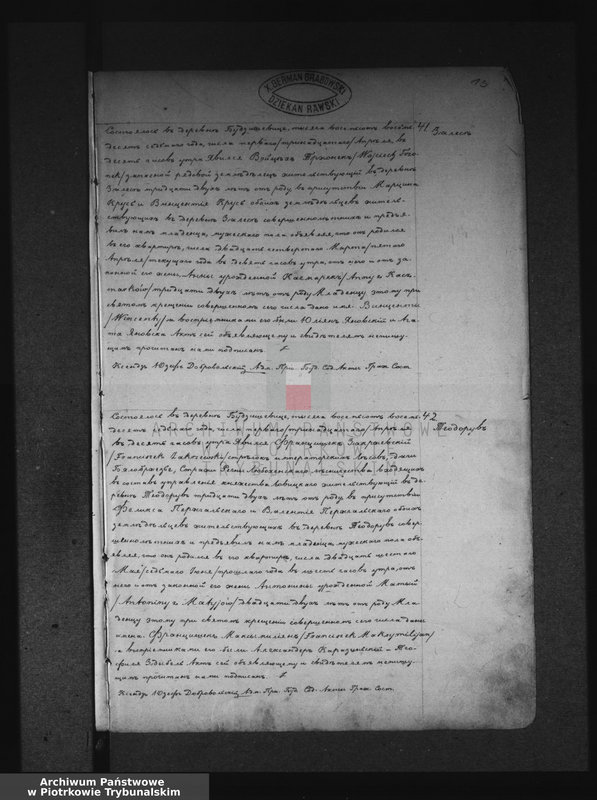 13
X. GERMAN GRABOWSKI
DZIEKAN RAWSKI
Состоялось въ деревнѣ Будзишевице, тысяча восемьсотъ восемь- 41 Залесь
десятъ седьмаго года, числа перваго /тринадцатаго/ Апрѣля, въ
десять часовъ утра. Явился Войцехъ /Wojciech
запасной рядовой земледѣлецъ жительствующій въ деревнѣ
Залесь тридцати двухъ лѣтъ отъ роду, въ присутствіи Марцина
Крусъ и Винцентія Крусъ обоихъ земледѣльцевъ жительс-
твующихъ въ деревнѣ Залесь совершеннолѣтнихъ и предъя-
вилъ намъ младенца мужескаго пола объявляя, что онъ родился
въ его квартирѣ, числа двадцать четвертаго Марта /пятаго
Апрѣля/ текущаго года въ девять часовъ утра, отъ него и отъ за-
конной его жены Анны урожденной Качмарекъ /Anny z Kacz
marków/ тридцати двухъ лѣтъ отъ роду. Младенцу этому при
святомъ крещеніи совершенномъ сего числа дано имя: Винцентій
/Wincenty/ а воспріемниками его были Юліянъ Яновскій и Ага-
та Яновска. Актъ сей объявляющему и свидѣтелямъ неграмот-
нымъ прочитанъ нами подписанъ.
Ксендзъ Юзефъ Добровольскій Адм. Прих. Буд. Сод. Акты Граж. Сост.
Состоялось въ деревнѣ Будзишевице, тысяча восемьсотъ восемь- 42
Теодорувъ
десятъ седьмаго года, числа перваго /тринадцатаго/ Апрѣля
въ десять часовъ утра. Явился Францишекъ Закржевскій
/Franciszek Zakrzewski/ стрѣлокъ императорскихъ лѣсовъ, дачи
Бялобржегъ, Стражи лѣсничества входящихъ
въ составъ управленія княжества Ловицкаго жительствующій въ де-
ревнѣ Теодорувъ тридцати двухъ лѣтъ отъ роду, въ присутствіи
Феликса и Валентія обоихъ
земледѣльцевъ жительствующихъ въ деревнѣ Теодорувъ совер-
шеннолѣтнихъ и предъявилъ намъ младенца мужескаго пола объ-
являя, что онъ родился въ его квартирѣ, числа двадцать шестаго
Мая /седьмаго Іюня/ прошлаго года въ шесть часовъ утра, отъ
него и отъ законной его жены Антонины урожденной
/Antoniny z двадцати двухъ лѣтъ отъ роду. Мла-
денцу этому при святомъ крещеніи совершенномъ сего числа даны
имена: Францишекъ Максымиліянъ /Franciszek Maksymilijan/
а воспріемниками его были Александеръ и Тео-
филя Актъ сей объявляющему и свидѣтелямъ неграмот-
нымъ прочитанъ нами подписанъ.
Ксендзъ Юзефъ Добровольскій Адм. Прих. Буд. Сод. Акты Граж. Сост.
Archiwum Państwowe
w Piotrkowie Trybunalskim